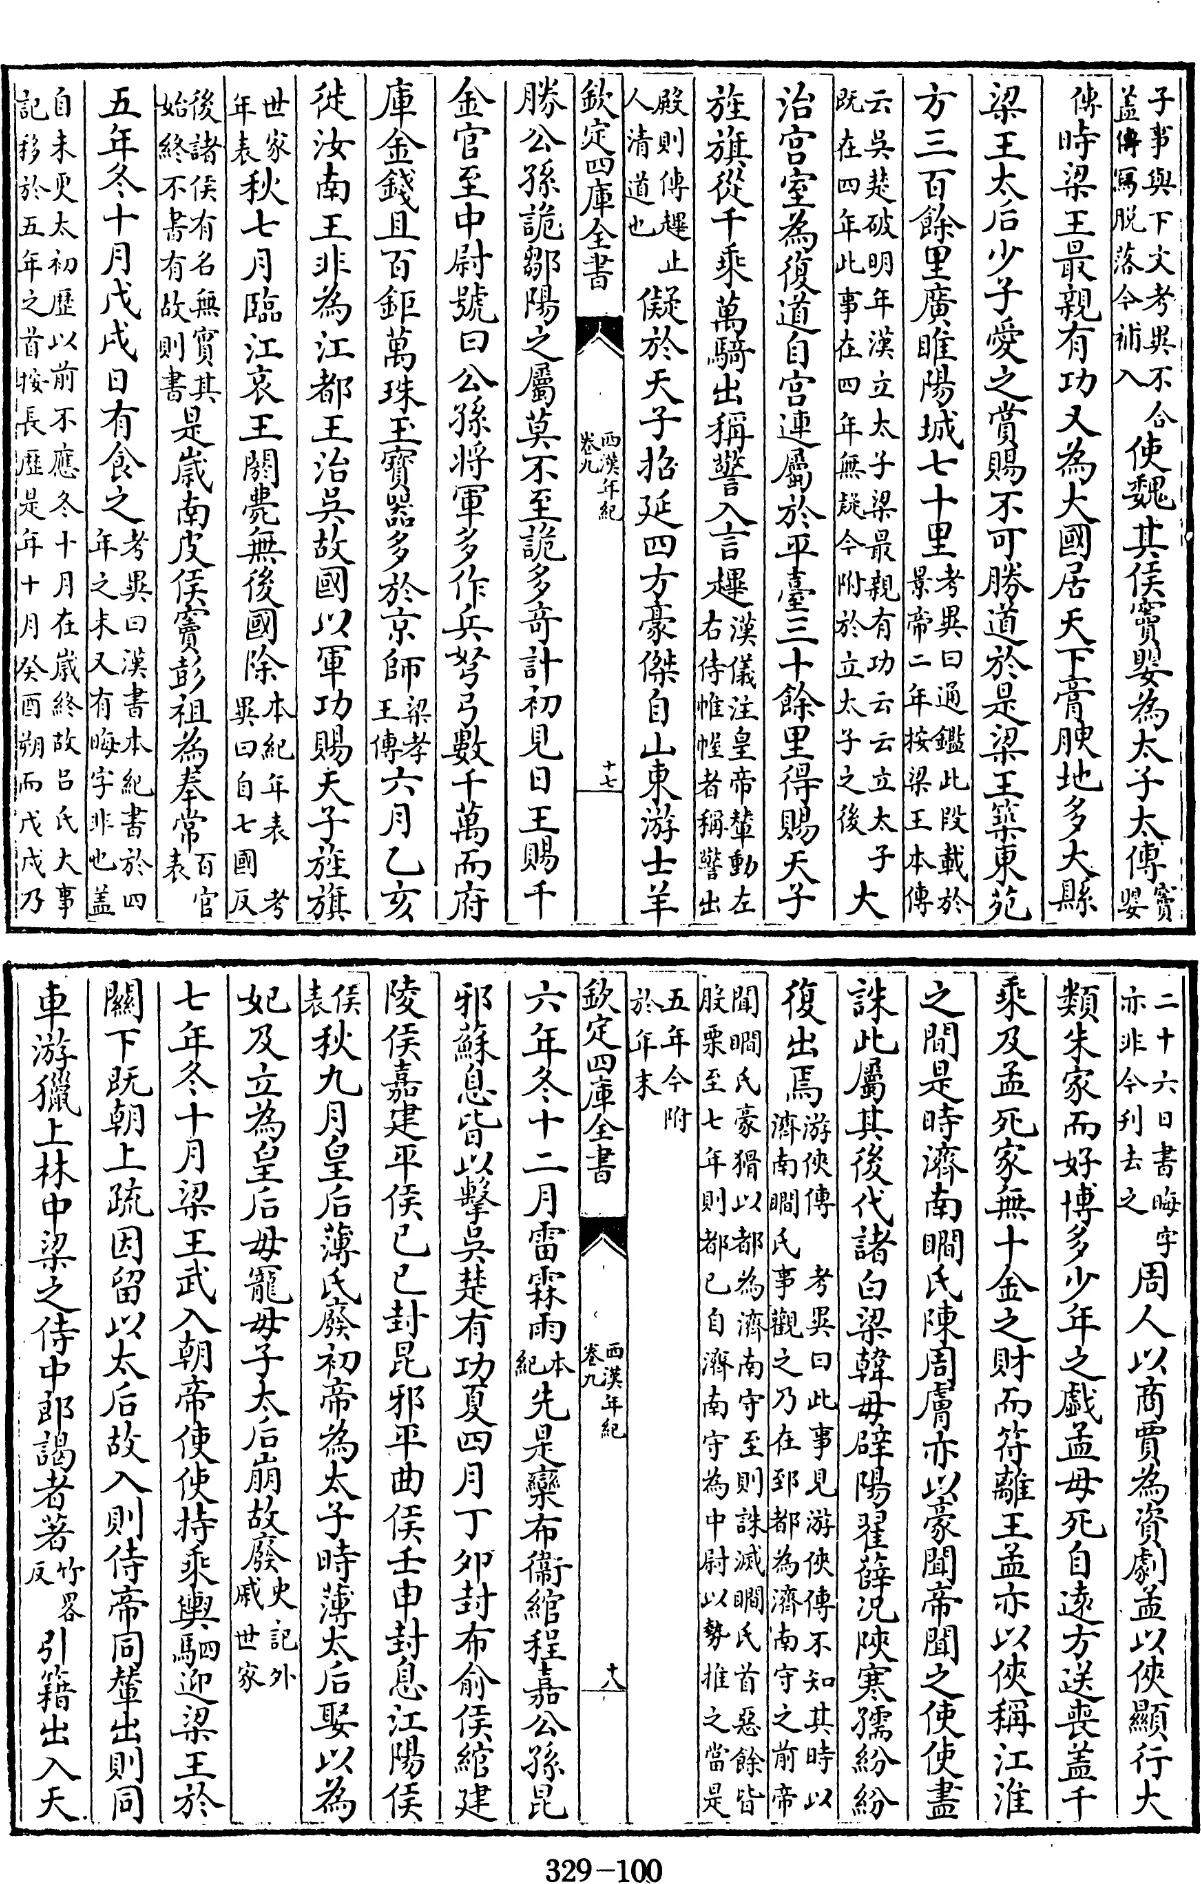 子事與下文考異不合盖傳寫脱落今補入使魏其侯竇嬰為太子太傅竇嬰
傳時梁王最親有功又為大國居天下膏腴地多大縣
梁王太后少子愛之賞賜不可勝道於是梁王築東苑
方三百餘里廣睢陽城七十里考異曰通鑑此段載於景帝二年按梁王本傳
云吳楚破明年漢立太子梁最親有功云云立太子既在四年此事在四年無疑今附於立太子之後大
治宫室為復道自宫連屬於平臺三十餘里得賜天子
旌旗從千乘萬騎出稱警入言趩漢儀注皇帝輦動左右侍帷幄者稱警出
殿則傳趩止人清道也儗於天子招延四方豪傑自山東游士羊
欽定四庫全書 西漢年紀卷九 十七
勝公孫詭鄒陽之屬莫不至詭多奇計初見日王賜千
金官至中尉號曰公孫將軍多作兵弩弓數千萬而府
庫金錢且百鉅萬珠玉寶器多於京師梁孝王傳六月乙亥
徙汝南王非為江都王治吳故國以軍功賜天子旌旗
世家年表秋七月臨江哀王閼薨無後國除本紀年表考異曰自七國反
後諸侯有名無實其始終不書有故則書是歲南皮侯竇彭祖為奉常百官表
五年冬十月戊戌日有食之考異曰漢書本紀書於四年之末又有晦字非也盖
自未更太初歷以前不應冬十月在歲終故吕氏大事記移於五年之首按長歴是年十月癸酉朔而戊戌乃
二十六日書晦字亦非今刊去之周人以商賈為資劇孟以俠顯行大
類朱家而好博多少年之戲孟母死自逺方送喪盖千
乘及孟死家無十金之財而符離王孟亦以俠稱江淮
之間是時濟南瞷氏陳周膚亦以豪聞帝聞之使使盡
誅此屬其後代諸白梁韓毋辟陽翟薛况陝寒孺紛紛
復出焉游俠傳考異曰此事見游俠傳不知其時以濟南瞷氏事觀之乃在郅都為濟南守之前帝
聞瞷氏豪猾以都為濟南守至則誅滅瞷氏首惡餘皆股栗至七年則都已自濟南守為中尉以勢推之當是
五年今附於年末
欽定四庫全書 西漢年紀卷九 十八
六年冬十二月雷霖雨本紀先是欒布衞綰程嘉公孫昆
邪蘇息皆以擊吳楚有功夏四月丁夘封布俞侯綰建
陵侯嘉建平侯已已封昆邪平曲侯壬申封息江陽侯
侯表秋九月皇后薄氏廢初帝為太子時薄太后娶以為
妃及立為皇后毋寵毋子太后崩故廢史記外戚世家
七年冬十月梁王武入朝帝使使持乘輿駟迎梁王於
闗下既朝上疏因留以太后故入則侍帝同輦出則同
車游獵上林中梁之侍中郎謁者著竹畧反引籍出入天
329-100